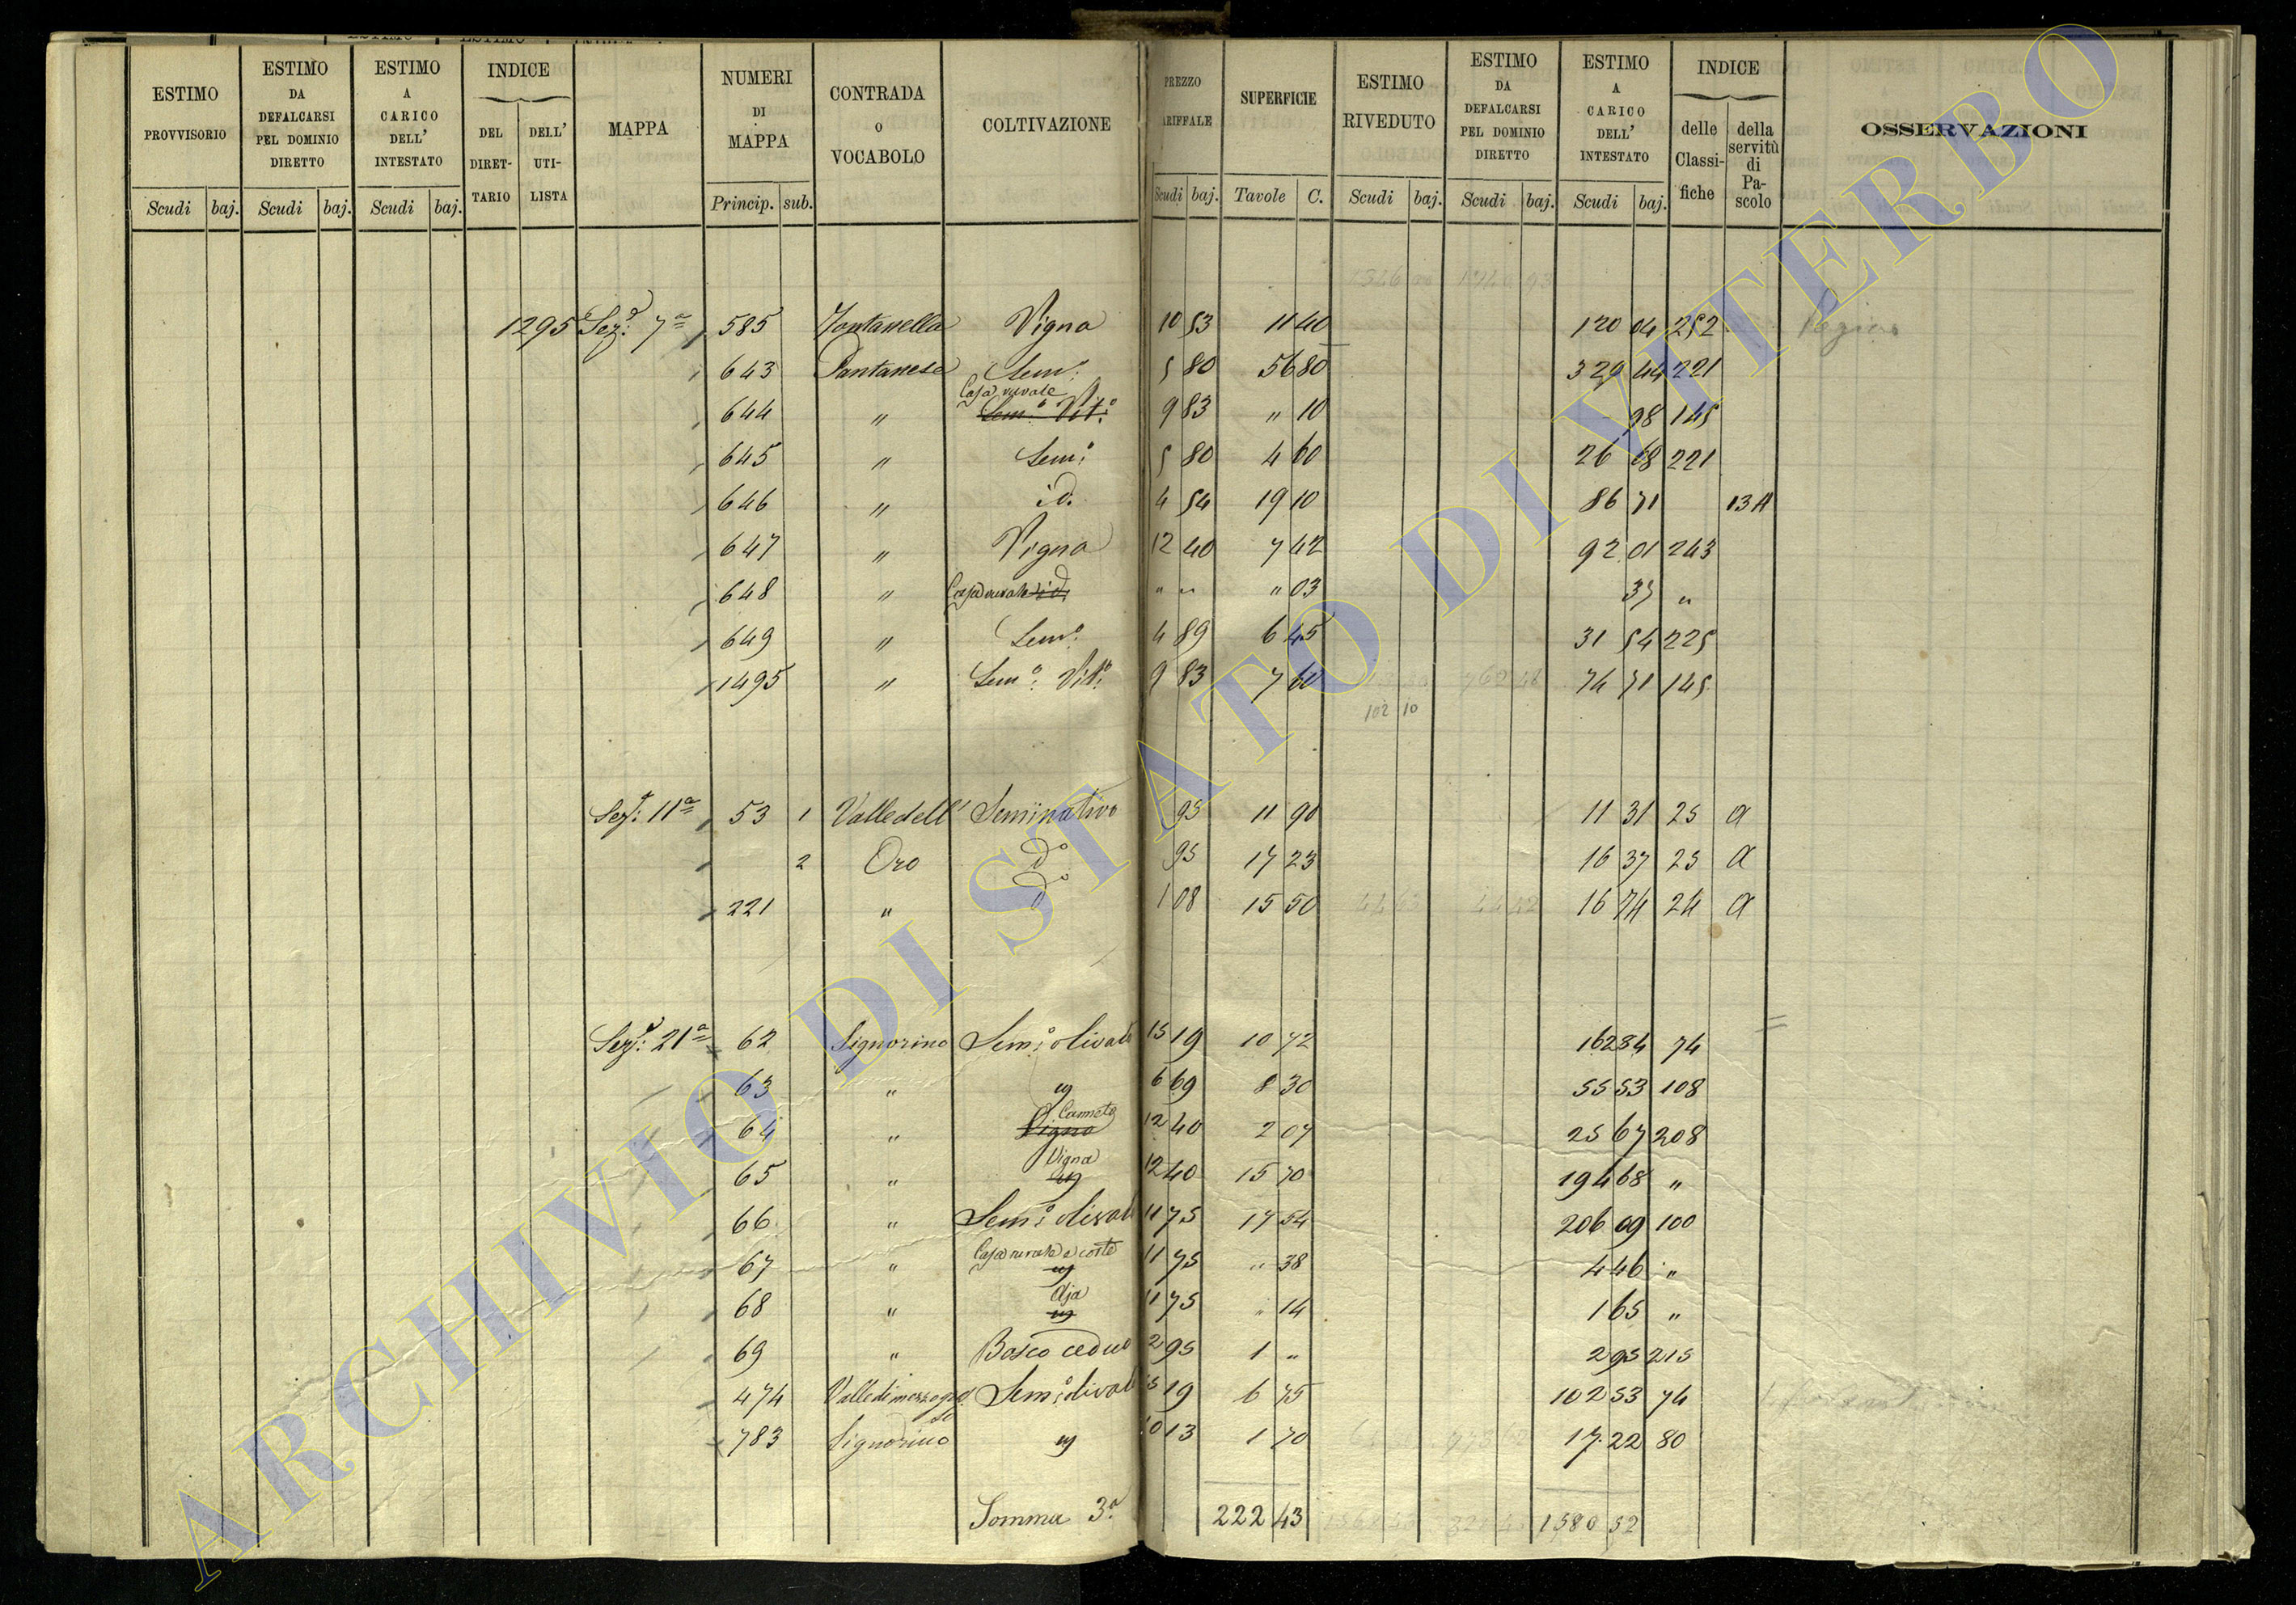 ESTIMO PROVVISORIO
ESTIMO DA DEFALCARSI PEL DOMINIO DIRETTO
ESTIMO A CARICO DELL' INTESTATO
INDICE
DEL DIRET-TARIO
DELL' UTI-LISTA
MAPPA
NUMERI DI MAPPA
CONTRADA O VOCABOLO
COLTIVAZIONE
Scudi baj. Scudi baj. Scudi baj. Princip. sub.
SUPERFICIE
ESTIMO RIVEDUTO
ESTIMO DA DEFALCARSI PEL DOMINIO DIRETTO
ESTIMO A CARICO DELL' INTESTATO
INDICE
delle Classi-fiche
della servitù di Pa-scolo
OSSERVAZIONI
Scudi baj. Tavole C. Scudi baj. Scudi baj. Scudi baj.
1295 Sez. 7ª 585 Fontanella Vigna 10 53 11 40 120 04 252
643 Pantanese Sem.º 5 80 56 80 329 44 221
644 " Casa rurale Sem.º Vit.º 9 83 " 10 98 145
645 " Sem.º 5 80 4 60 26 68 221
646 " id. 4 54 19 10 86 71 13 A
647 " Vigna 12 40 7 42 92 01 243
648 " Casa rurale id. " " " 03 37 "
649 " Sem.º 4 89 6 45 31 54 225
1495 " Sem.º Vit.º 9 83 7 60 74 71 145
102 10
Sez. 11ª 53 1 Valle dell' Seminativo 95 11 90 11 31 25 a
2 Oro dº 95 17 23 16 37 25 a
221 " dº 1 08 15 50 16 74 24 a
Sez. 21ª 62 Signorino Sem.º olivato 15 19 10 72 162 84 74
63 " 6 69 8 30 55 53 108
64 " Canneto Vigna 12 40 2 07 25 67 208
65 " Vigna 12 40 15 70 194 68 "
66 " Sem.º olivato 11 75 17 54 206 09 100
67 " Casa rurale e corte 11 75 " 38 4 46 "
68 " Aja 11 75 " 14 1 65 "
69 " Bosco ceduo 2 95 1 " 2 95 215
474 Sem.º olivato 15 19 6 75 102 53 74
783 Signorino 10 13 1 70 17 22 80
Somma 3ª 222 43 1580 52
ARCHIVIO DI STATO DI VITERBO